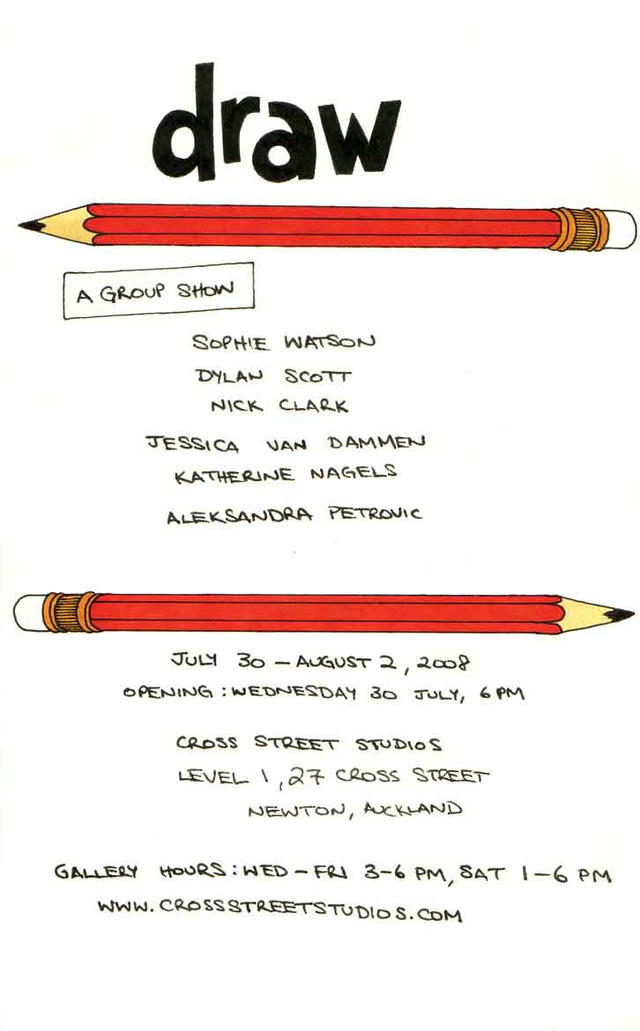 draw
A GROUP SHOW
SOPHIE WATSON
DYLAN SCOTT
NICK CLARK
JESSICA VAN DAMMEN
KATHERINE NAGELS
ALEKSANDRA PETROVIC
JULY 30 – AUGUST 2, 2008
OPENING : WEDNESDAY 30 JULY, 6 PM
CROSS STREET STUDIOS
LEVEL 1, 27 CROSS STREET
NEWTON, AUCKLAND
GALLERY HOURS : WED – FRI 3-6 PM, SAT 1-6 PM
WWW.CROSSSTREETSTUDIOS.COM